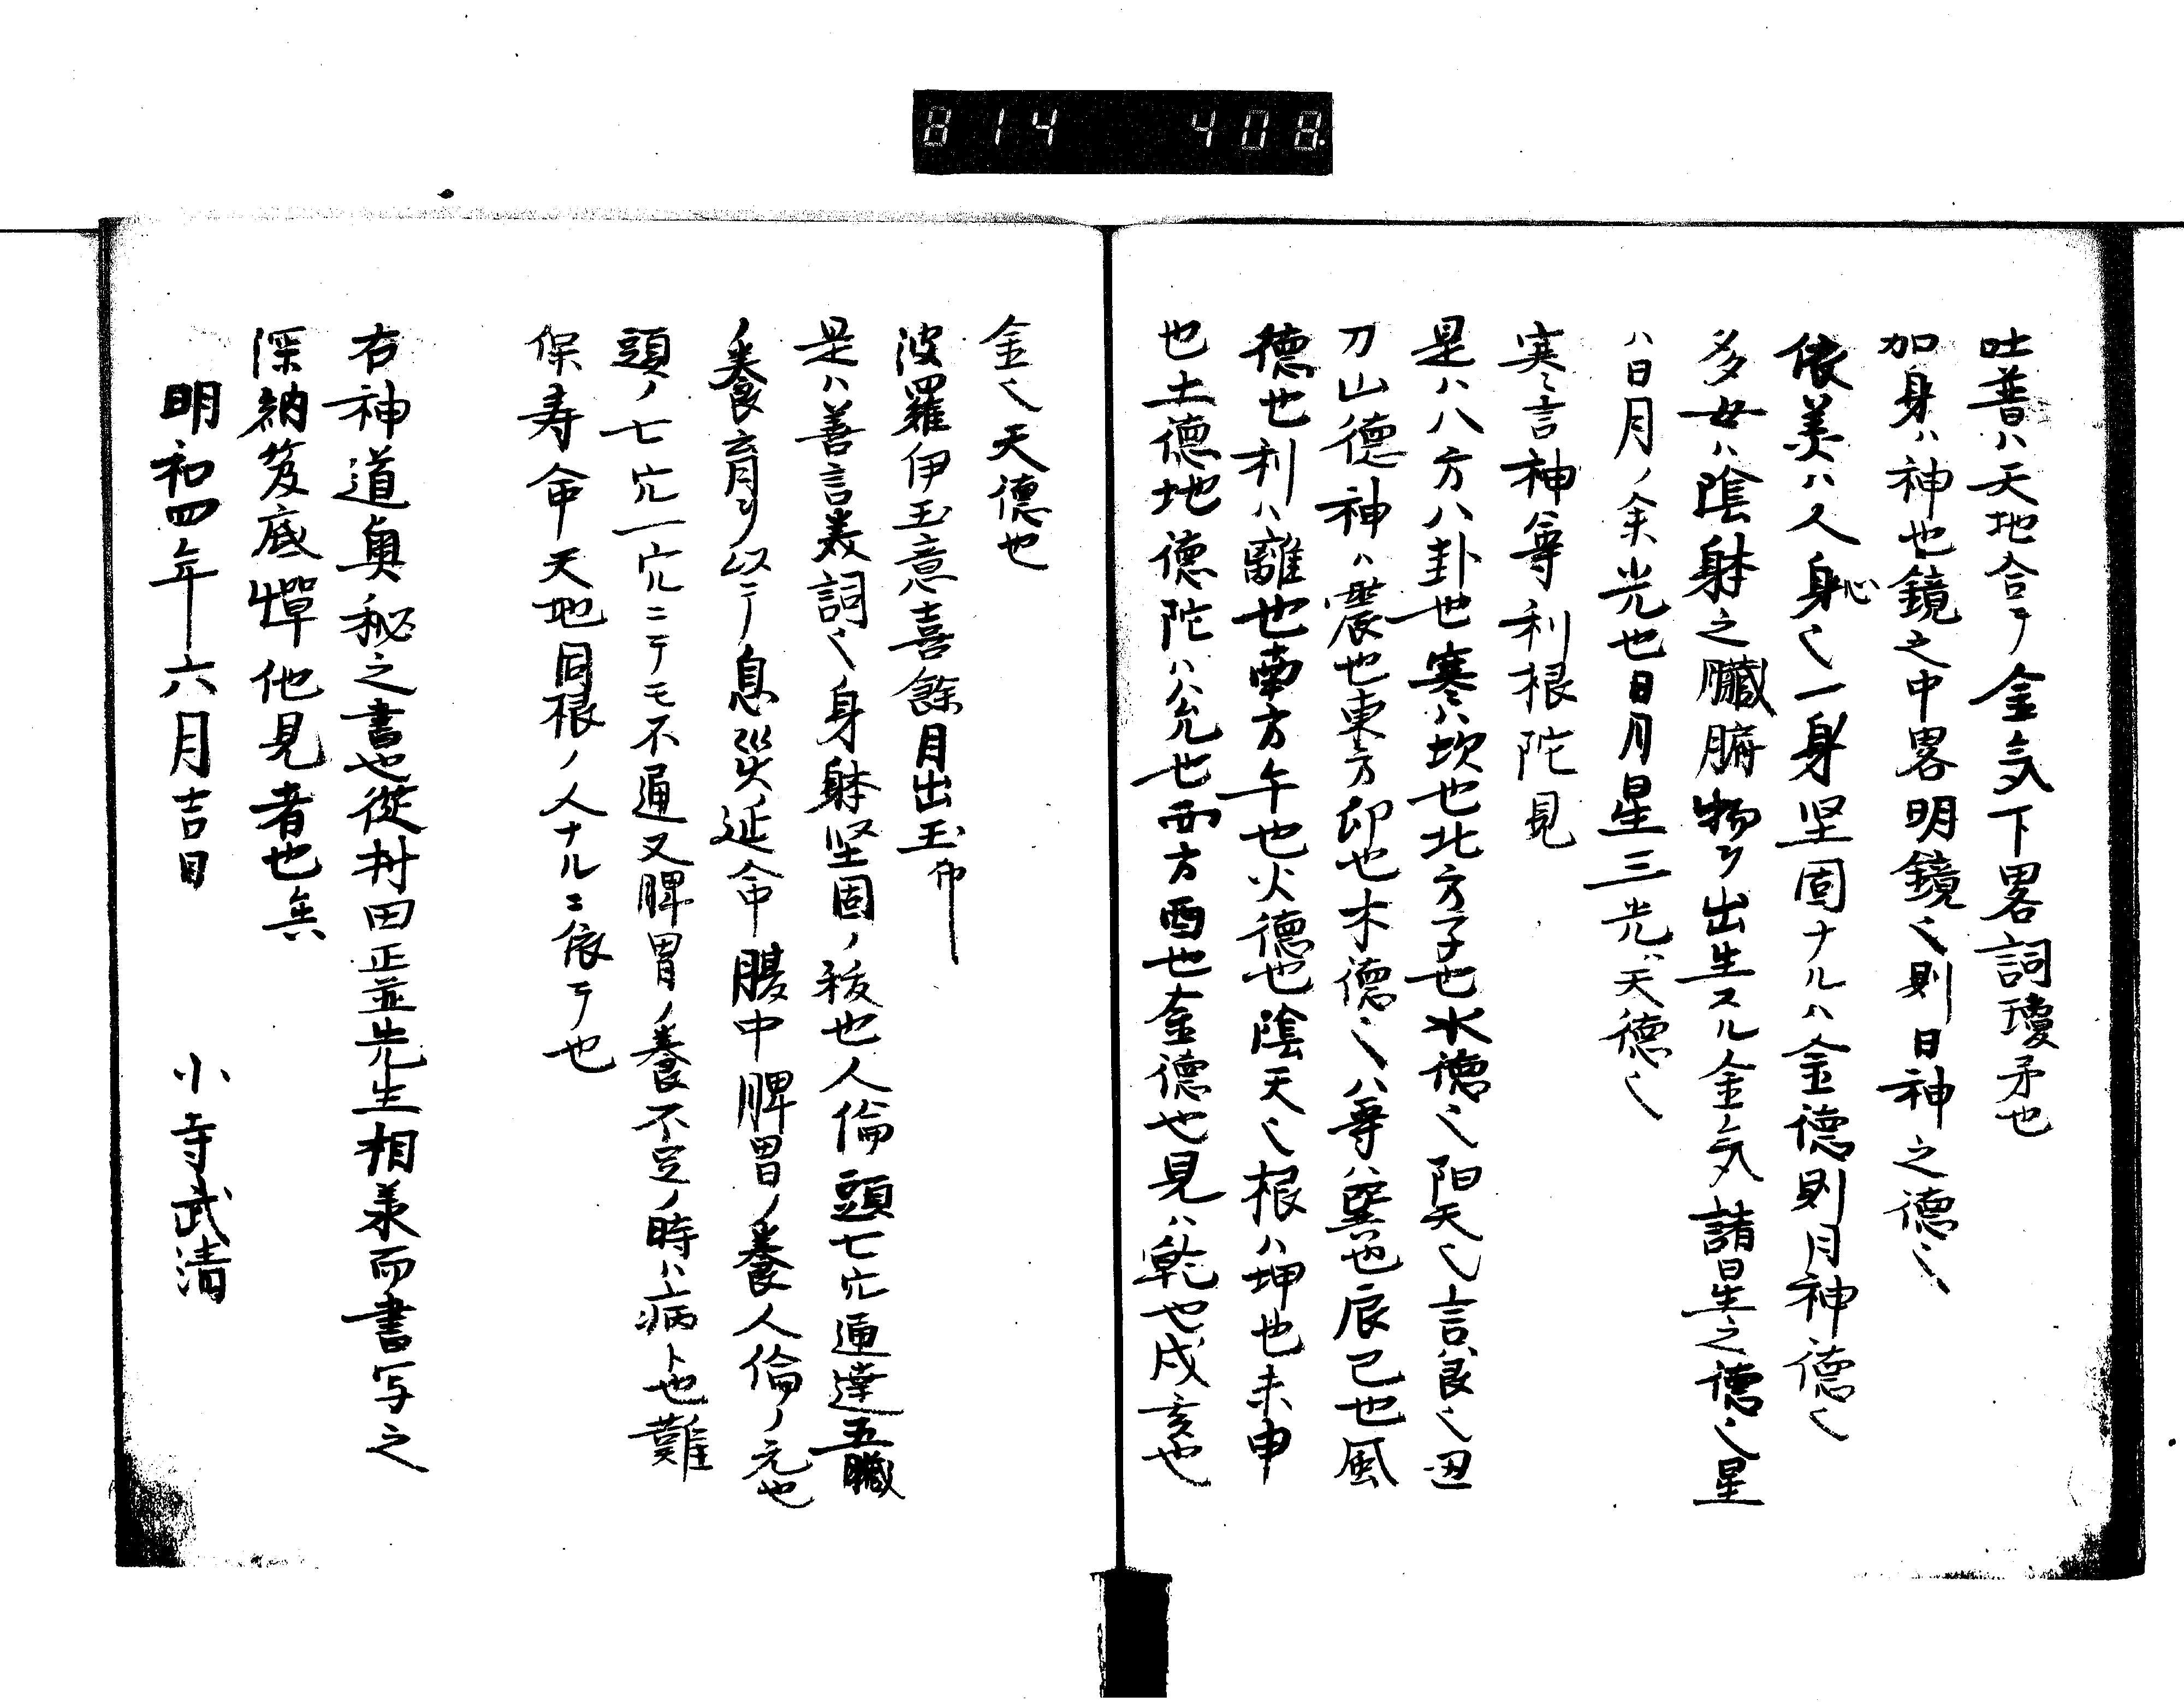 814 408.
吐普ハ天地合テ金気下畧詞瓊矛也
加身ハ神也鏡之中畧明鏡〱則日神之德〱
依美ハ人身〱一身坚固ナルハ金德則月神德〱
多女ハ陰躰之臓腑物ヲ出生スル金気諸星之德〱星
ハ日月ノ余光也日月星三光ハ天德〱
寒言神尊利根陀見
是ハ八方八卦也寒ハ坎也北方子也水德〱陽天〱言ハ艮〱丑
刀山德神ハ震也東方卯也木德〱ハ尊ハ巽也辰巳也風
德也利ハ離也南方午也火德也陰天〱根ハ坤也未申
也土德地德陀ハ兊也西方酉也金德也見ハ乾也戌亥也
金〱天德也
波羅伊玉意喜餘目出玉
是ハ善言美詞〱身躰坚固ノ祓也人倫頭七穴通達五臓
ノ養育ヲ以テ息災延命腹中脾胃ノ養人倫ノ元也
頭ノ七穴一穴ニテモ不通又脾胃ノ養不足ノ時ハ病ト也難
保寿命天地同根ノ人ナルニ依テ也
右神道奥秘之書也從村田正並先生相承而書写之
深納笈底憚他見者也矣
明和四年六月吉日 小寺武清